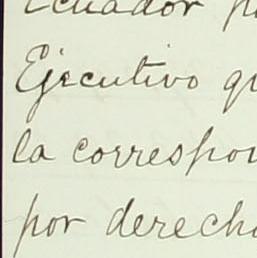 Ecuador p
Ejecutivo qu
la correspon
por derecho